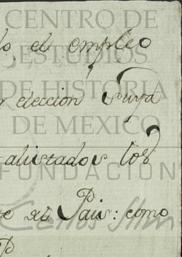 CENTRO DE
ESTUDIOS
DE HISTORIA
DE MEXICO
FUNDACIÓN
Carlos Slim
el empleo
eleccion suya
alistados los
Pais: como